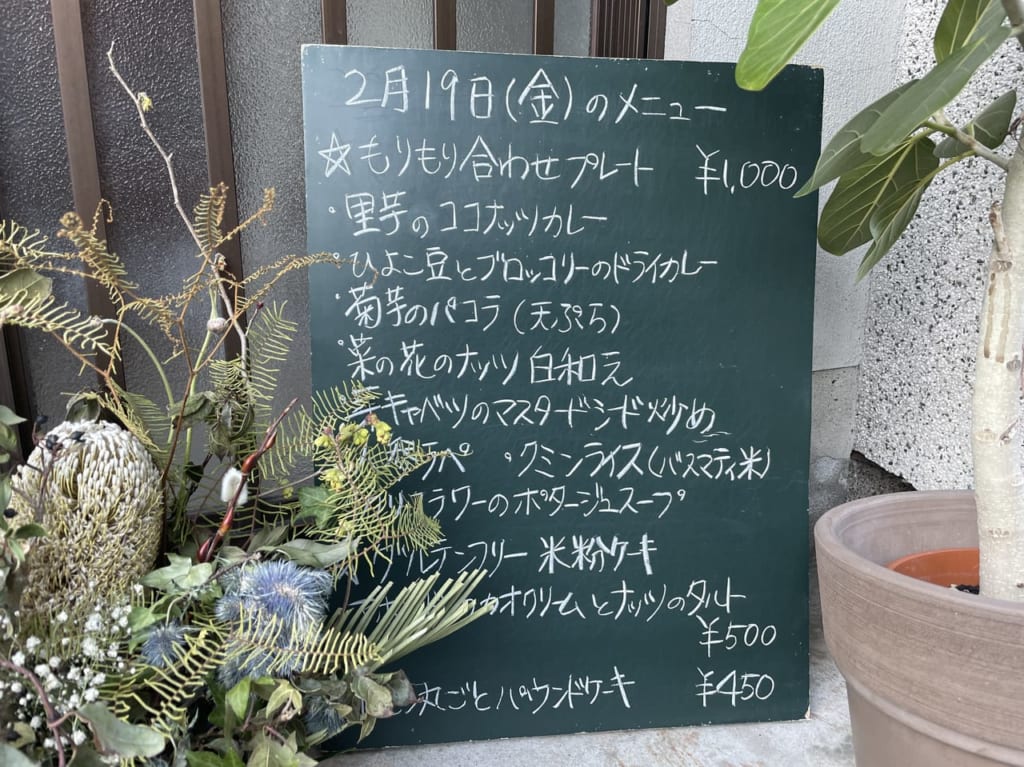 2月19日(金)のメニュー
☆もりもり合わせプレート ¥1,000
・里芋のココナッツカレー
・ひよこ豆とブロッコリーのドライカレー
・菊芋のパコラ(天ぷら)
・菜の花のナッツ白和え
キャベツのマスタードシード炒め
・クミンライス(バスマティ米)
フラワーのポタージュスープ
グルテンフリー 米粉ケーキ
カカオクリームとナッツのタルト
¥500
丸ごとパウンドケーキ ¥450